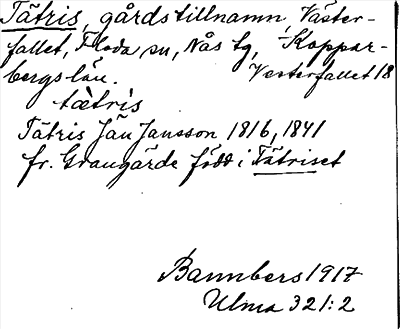 Tätris, gårdstillnamn, Väster-
fallet, Floda sn, Nås tg, Koppar-
bergs län. Vesterfallet 18
tæ̀tris
Tätris Jan Jansson 1816, 1841
fr. Grangärde född i Tätriset
Bannbers 1917
Ulma 321:2